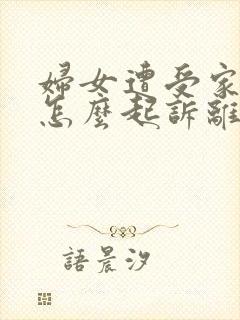 婦女遭受家
怎麼起訴離
語晨汐